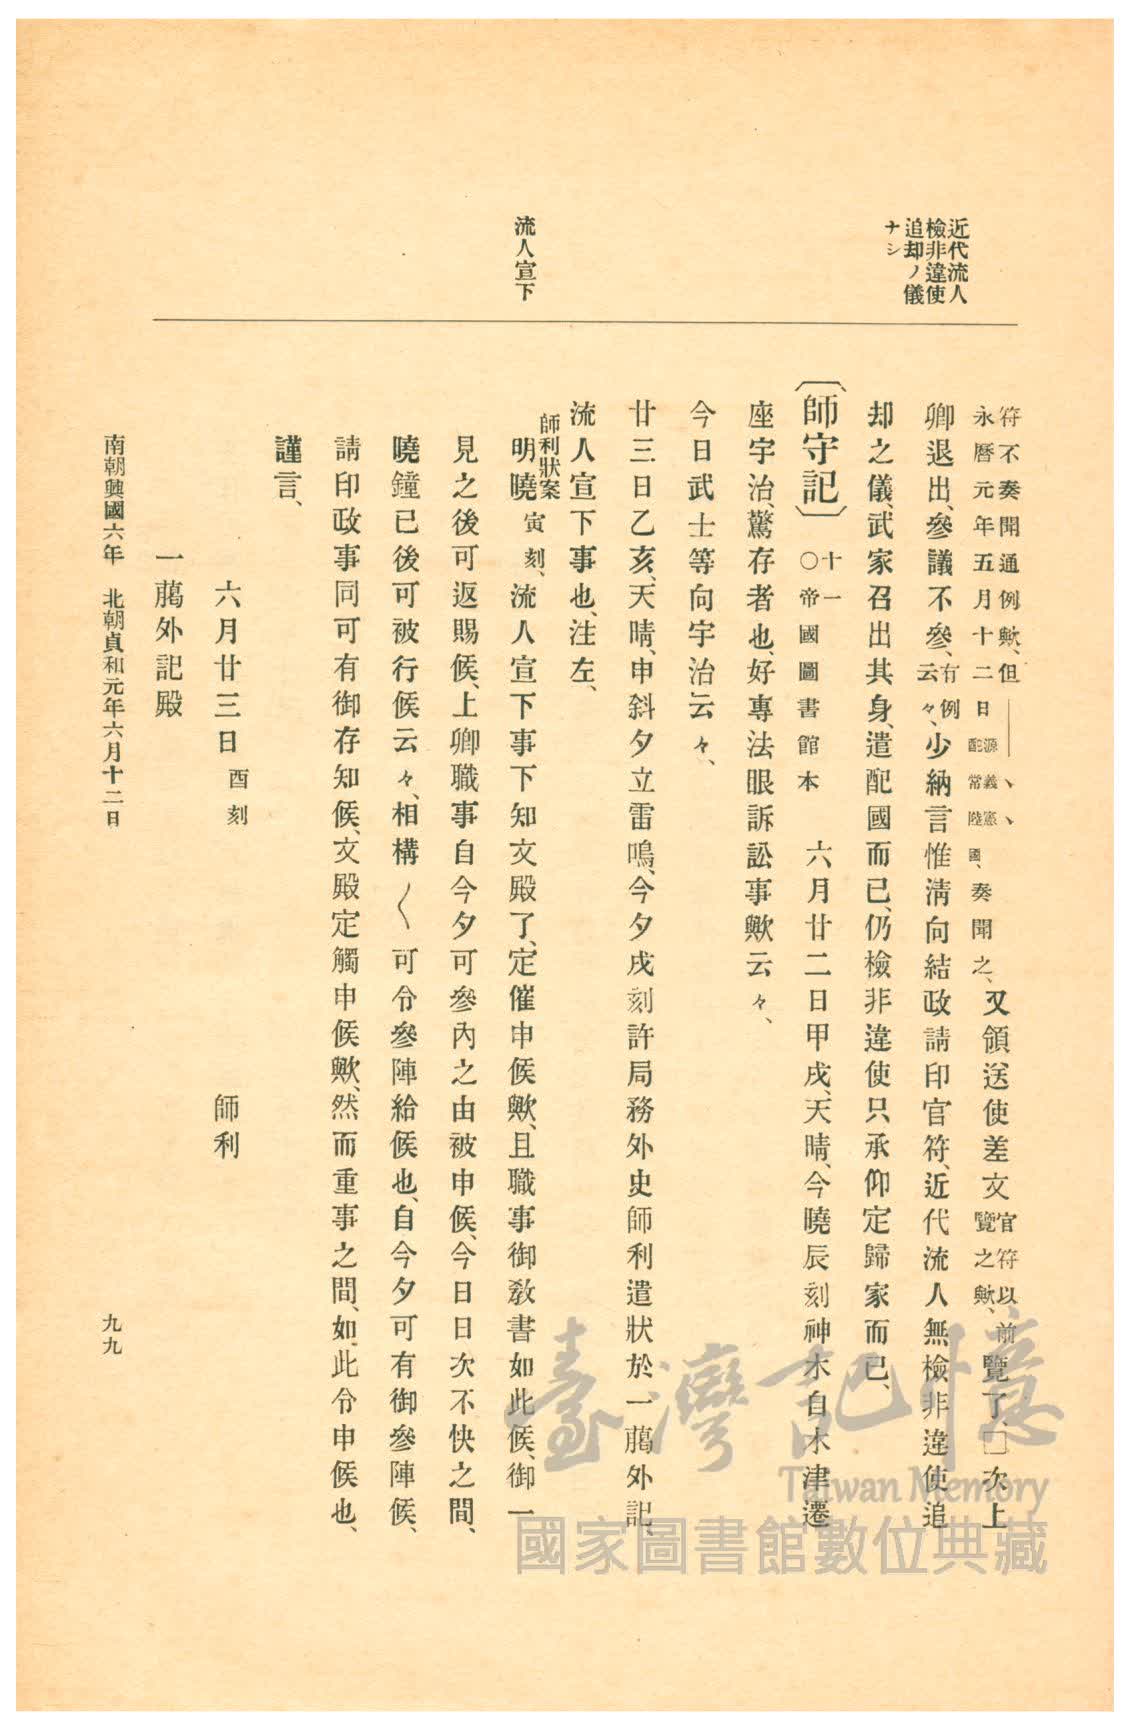 近代流人
檢非違使
追却ノ儀
ナシ
流人宣下
符不奏聞通例歟、但――、、
永曆元年五月十二日源義憲配常陸國、奏聞之、又領送使差文官符以前覽之歟、覽了、□次上
卿退出、參議不參、有例云々、少納言惟淸向結政請印官符、近代流人無檢非違使追
却之儀、武家召出其身、遣配國而已、仍檢非違使只承仰定歸家而已、
〔師守記〕十一○帝國圖書館本 六月廿二日甲戌、天晴、今曉辰刻神木自木津遷
座宇治、驚存者也、好專法眼訴訟事歟云々、
今日武士等向宇治云々、
廿三日乙亥、天晴、申斜夕立雷鳴、今夕戌刻許局務外史師利遣狀於一﨟外記、
流人宣下事也、注左、
師利狀案
明曉寅刻、流人宣下事下知文殿了、定催申候歟、且職事御敎書如此候、御一
見之後可返賜候、上卿職事自今夕可參內之由被申候、今日日次不快之間、
曉鐘已後可被行候云々、相構〱可令參陣給候也、自今夕可有御參陣候、
請印政事同可有御存知候、文殿定觸申候歟、然而重事之間、如此令申候也、
謹言、
六月廿三日酉刻 師利
一﨟外記殿
南朝興國六年 北朝貞和元年六月十二日
九九
臺灣記憶
Taiwan Memory
國家圖書館數位典藏